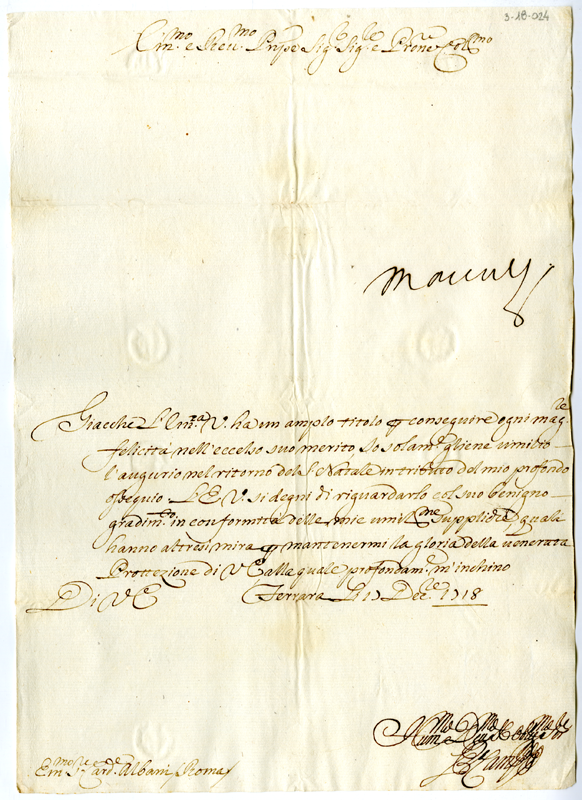 3-18-024
Em.mo e Reu.mo Pnpe Sig.e Sig.le e Prone Col.mo
Giacche L'Em.za V. ha un amplo titolo p conseguire ogni mag.le
felicità nell'eccelso suo merito Io solam.e gliene umilio
l'augurio nel ritorno del S. Natale in tributo del mio profondo
ossequio. L'E.V. si degni di riguardarlo col suo benigno
gradim.to in conformità delle mie umil.me suppliche, quali
hanno altresi mira p mantenermi la gloria della venerata
Prottezione di VE alla quale profondam.e m'inchino
Di VE Ferrara Li 17 Dec.e 1718
Em.mo S.e Card.e Albani Roma